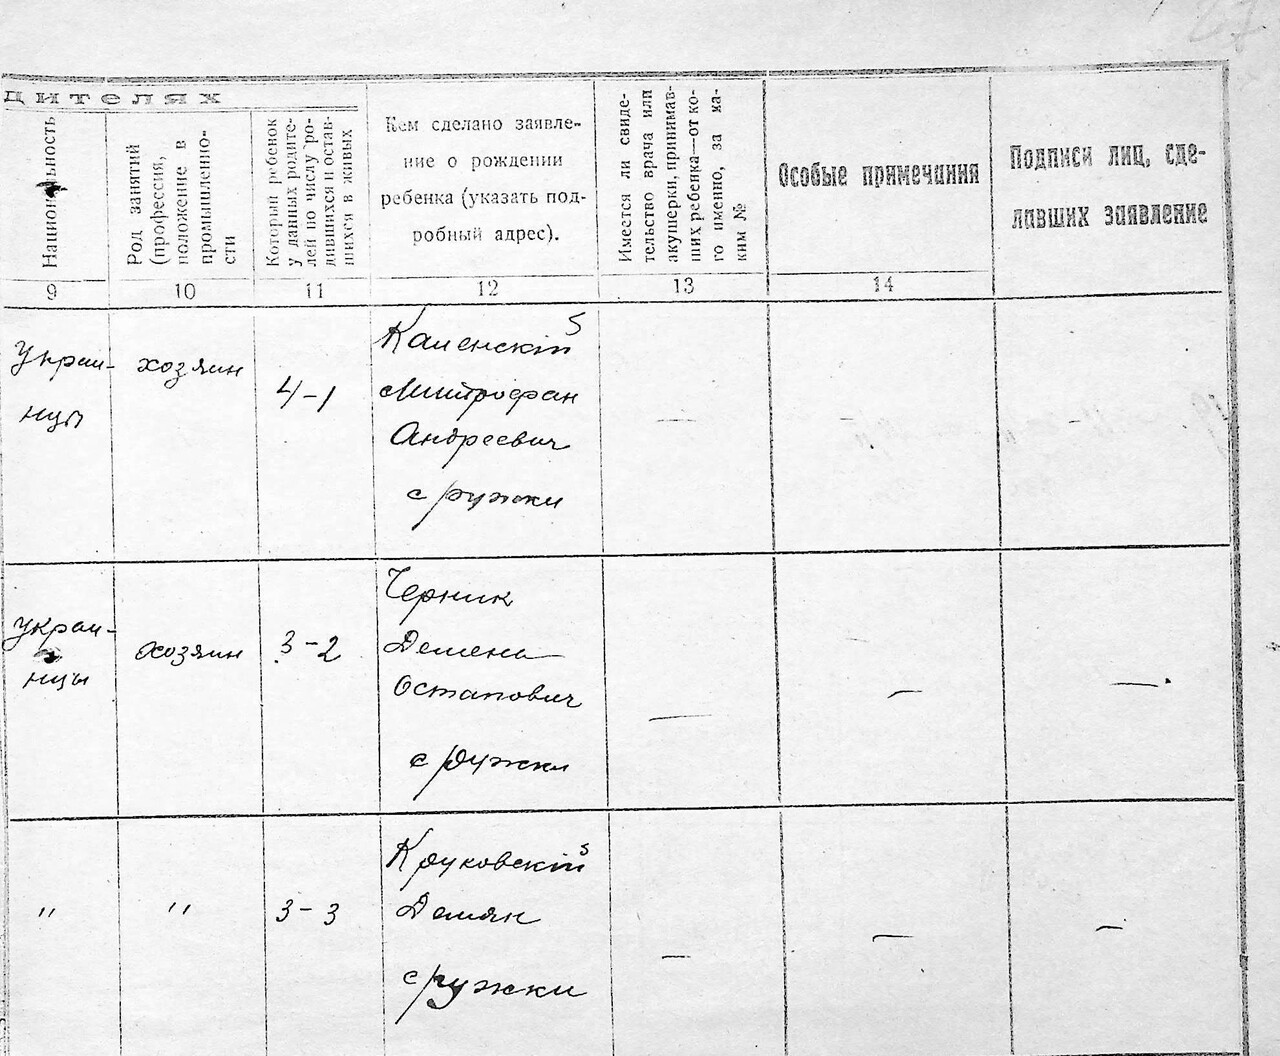 27
дителях
Национальность
Род занятий
(профессия,
положение в
промышленно-
сти
Который ребенок
у данных родите-
лей по числу ро-
дившихся и остав-
шихся в живых
Кем сделано заявле-
ние о рождении
ребенка (указать под-
робный адрес).
Имеется ли свиде-
тельство врача или
акушерки, принимав-
ших ребенка—от ко-
го именно, за ка-
ким №
Особые примечания
Подписи лиц, сде-
лавших заявление
9 10 11 12 13 14
Украи-
нцы
хозяин
4-1
Каменскій
Митрофан
Андреевич
с Ружки
—
—
украи-
нцы
хозяин
3-2
Черник
Демена
Остапович
с Ружки
—
—
—
"
"
3-3
Круковскій
Демян
с Ружки
—
—
—